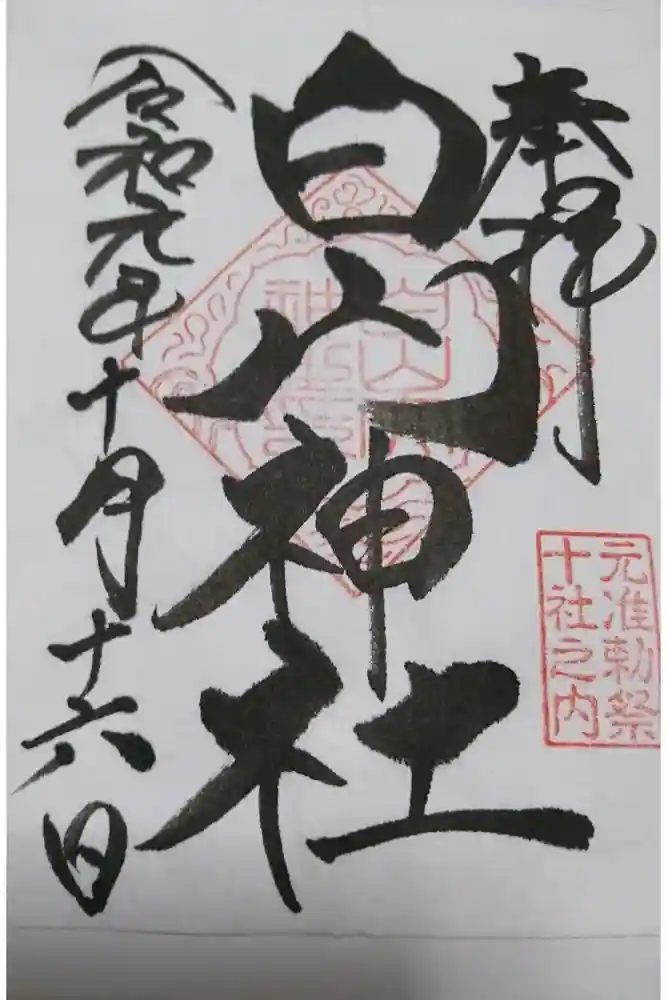 奉拝
白山神社
令和元年十月十六日
元准勅祭
十社之内